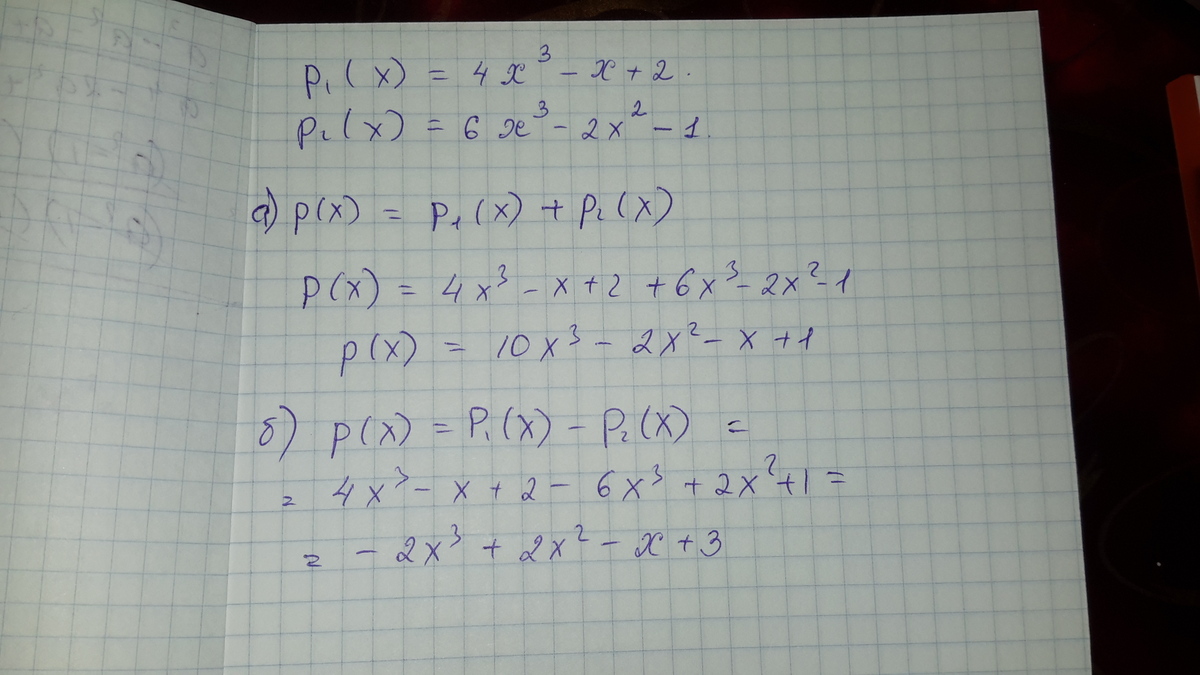 p₁(x) = 4x³ - x + 2.
p₂(x) = 6x³ - 2x² - 1.
а) p(x) = p₁(x) + p₂(x)
p(x) = 4x³ - x + 2 + 6x³ - 2x² - 1
p(x) = 10x³ - 2x² - x + 1
б) p(x) = P₁(x) - P₂(x) =
= 4x³ - x + 2 - 6x³ + 2x² + 1 =
= - 2x³ + 2x² - x + 3